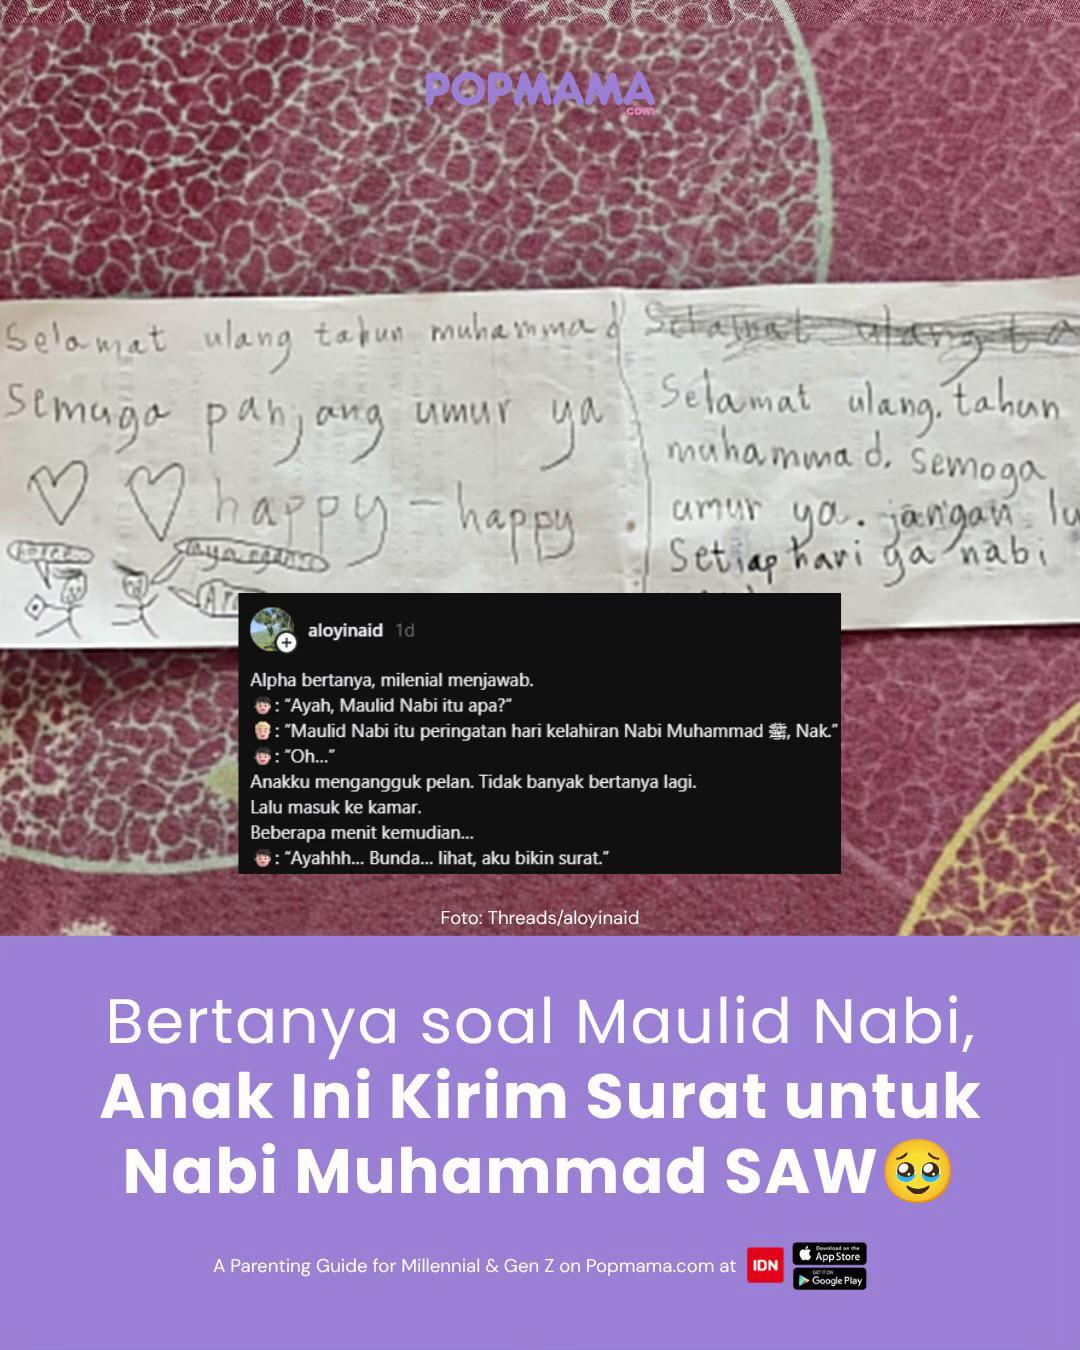 POPMAMA
.com
Selamat ulang tahun muhammad
Semuga panjang umur ya
happy - happy
Selamat ulang ta
Selamat ulang. tahun
muhammad. Semoga
umur ya. jangan lu
Setiap hari ya nabi
aloyinaid 1d
Alpha bertanya, milenial menjawab.
: “Ayah, Maulid Nabi itu apa?”
: “Maulid Nabi itu peringatan hari kelahiran Nabi Muhammad ﷺ, Nak.”
: “Oh...”
Anakku mengangguk pelan. Tidak banyak bertanya lagi.
Lalu masuk ke kamar.
Beberapa menit kemudian...
: “Ayahhh... Bunda... lihat, aku bikin surat.”
Foto: Threads/aloyinaid
Bertanya soal Maulid Nabi,
Anak Ini Kirim Surat untuk
Nabi Muhammad SAW🥹
A Parenting Guide for Millennial & Gen Z on Popmama.com at IDN
Download on the
App Store
GET IT ON
Google Play